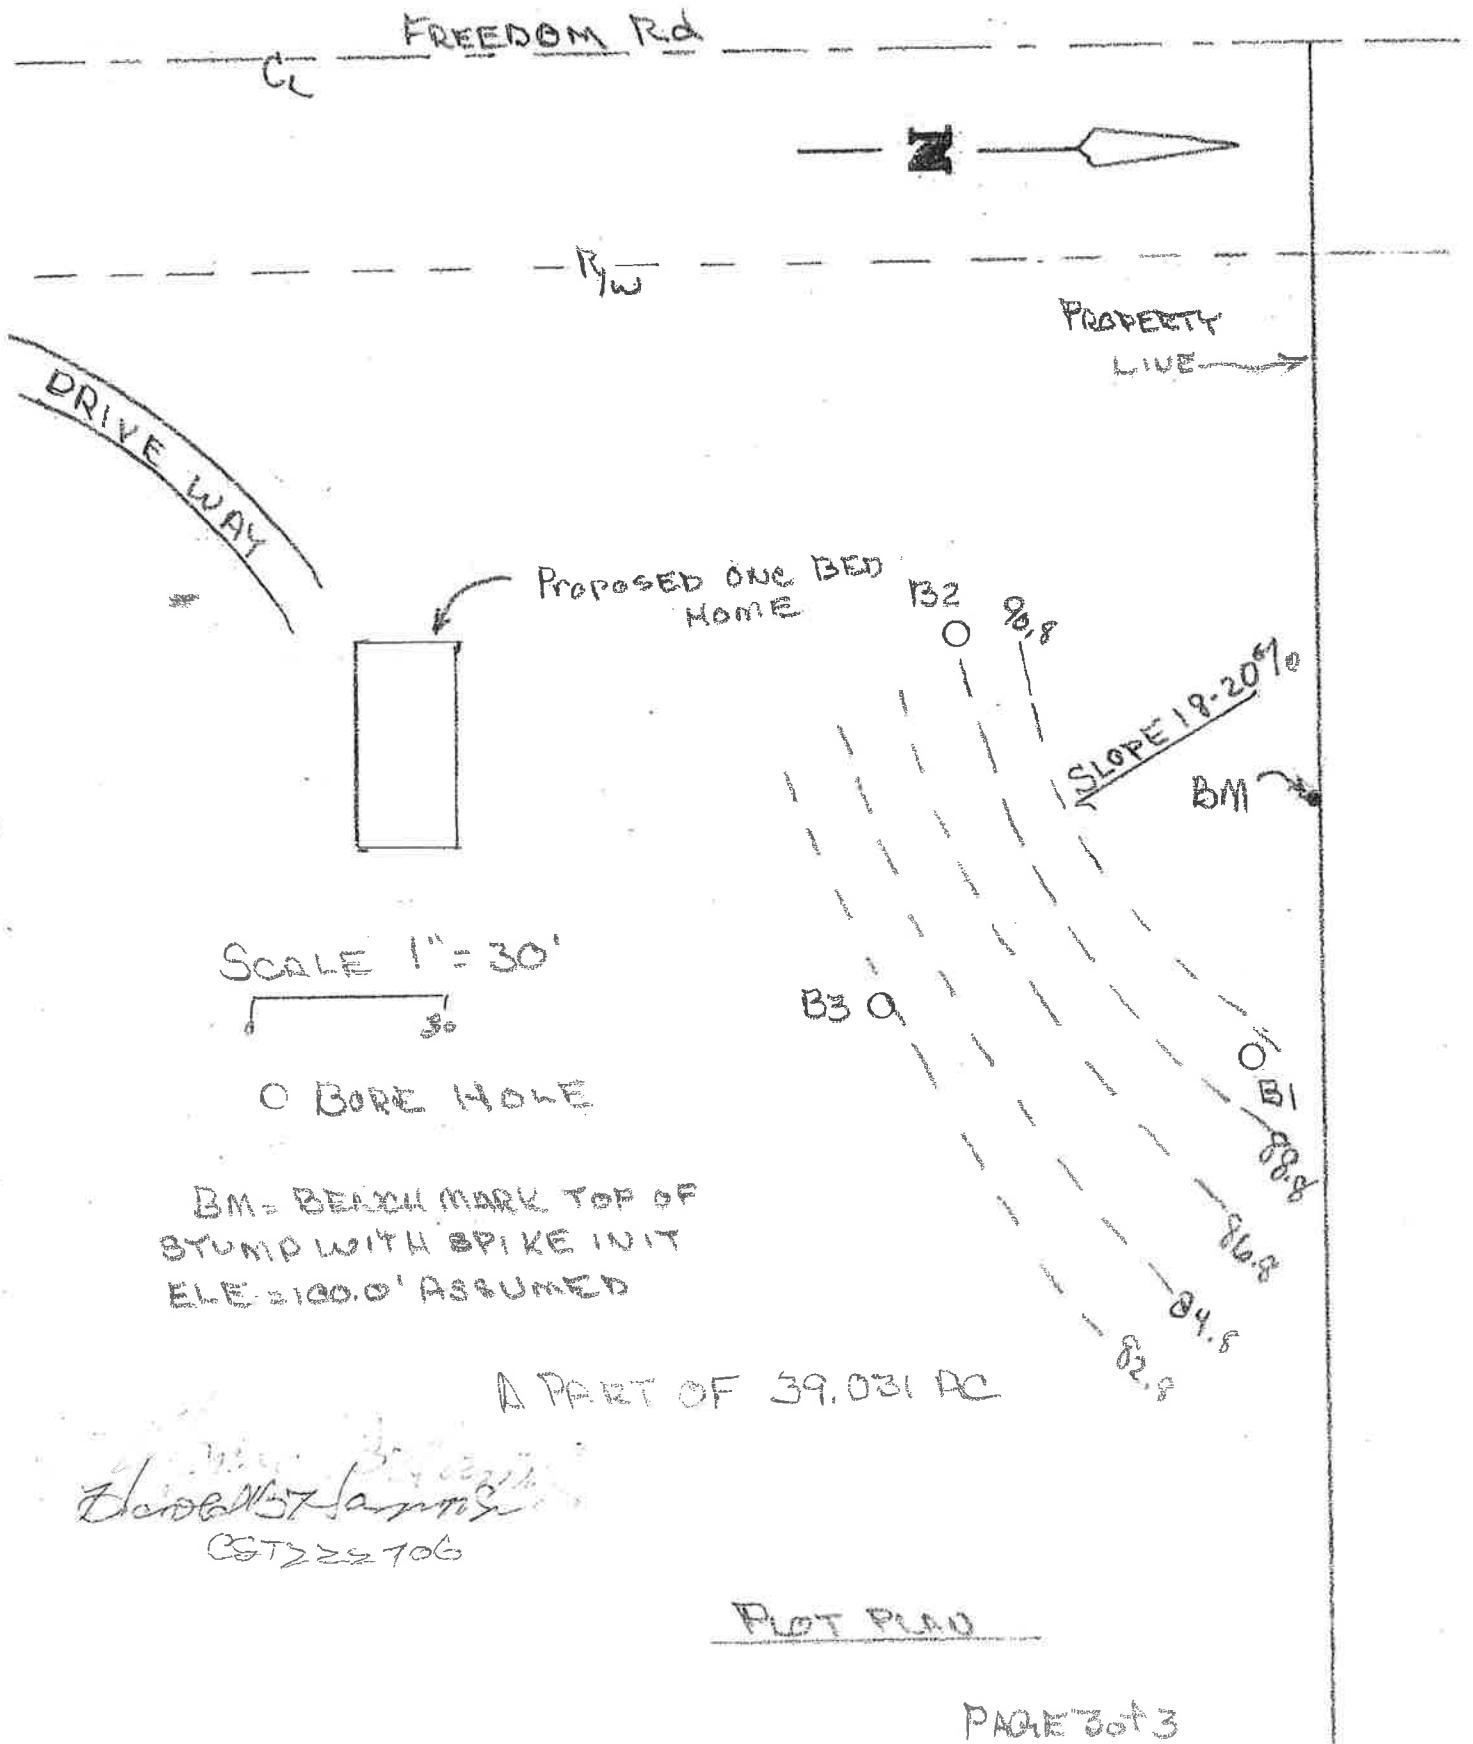 FREEDOM Rd
CL
N
R/W
PROPERTY
LINE
DRIVE WAY
PROPOSED ONE BED
HOME
B2
90.8
SLOPE 18-20%
BM
SCALE 1" = 30'
0 30
B3
B1
O BORE HOLE
88.8
BM = BENCH MARK TOP OF
STUMP WITH SPIKE IN IT
ELE = 100.0' ASSUMED
86.8
84.8
82.8
A PART OF 39.031 AC
CST222706
PLOT PLAN
PAGE 3 of 3